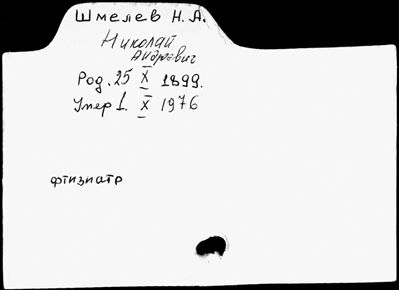 Шмелев Н. А.
Николай
Андреевич
Род. 25 X 1899.
Умер 1. X 1976
фтизиатр